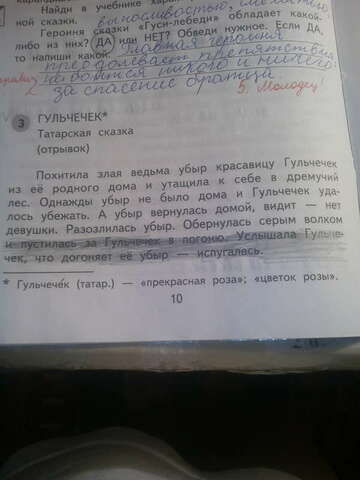 Найди в учебнике
ной сказки. выносливостью,
Героиня сказки «Гуси-лебеди» обладает какой-
либо из них? ДА или НЕТ? Обведи нужное. Если ДА,
то напиши какой. Главная героиня
преодолевает препятствия
не боится никого и ничего
за спасение братьи.
5. Молодец!
3 ГУЛЬЧЕЧЕК*
Татарская сказка
(отрывок)
Похитила злая ведьма убыр красавицу Гульчечек
из её родного дома и утащила к себе в дремучий
лес. Однажды убыр не было дома и Гульчечек уда-
лось убежать. А убыр вернулась домой, видит — нет
девушки. Разозлилась убыр. Обернулась серым волком
и пустилась за Гульчечек в погоню. Услышала Гульче-
чек, что догоняет её убыр — испугалась.
* Гульчечéк (татар.) — «прекрасная роза»; «цветок розы».
10